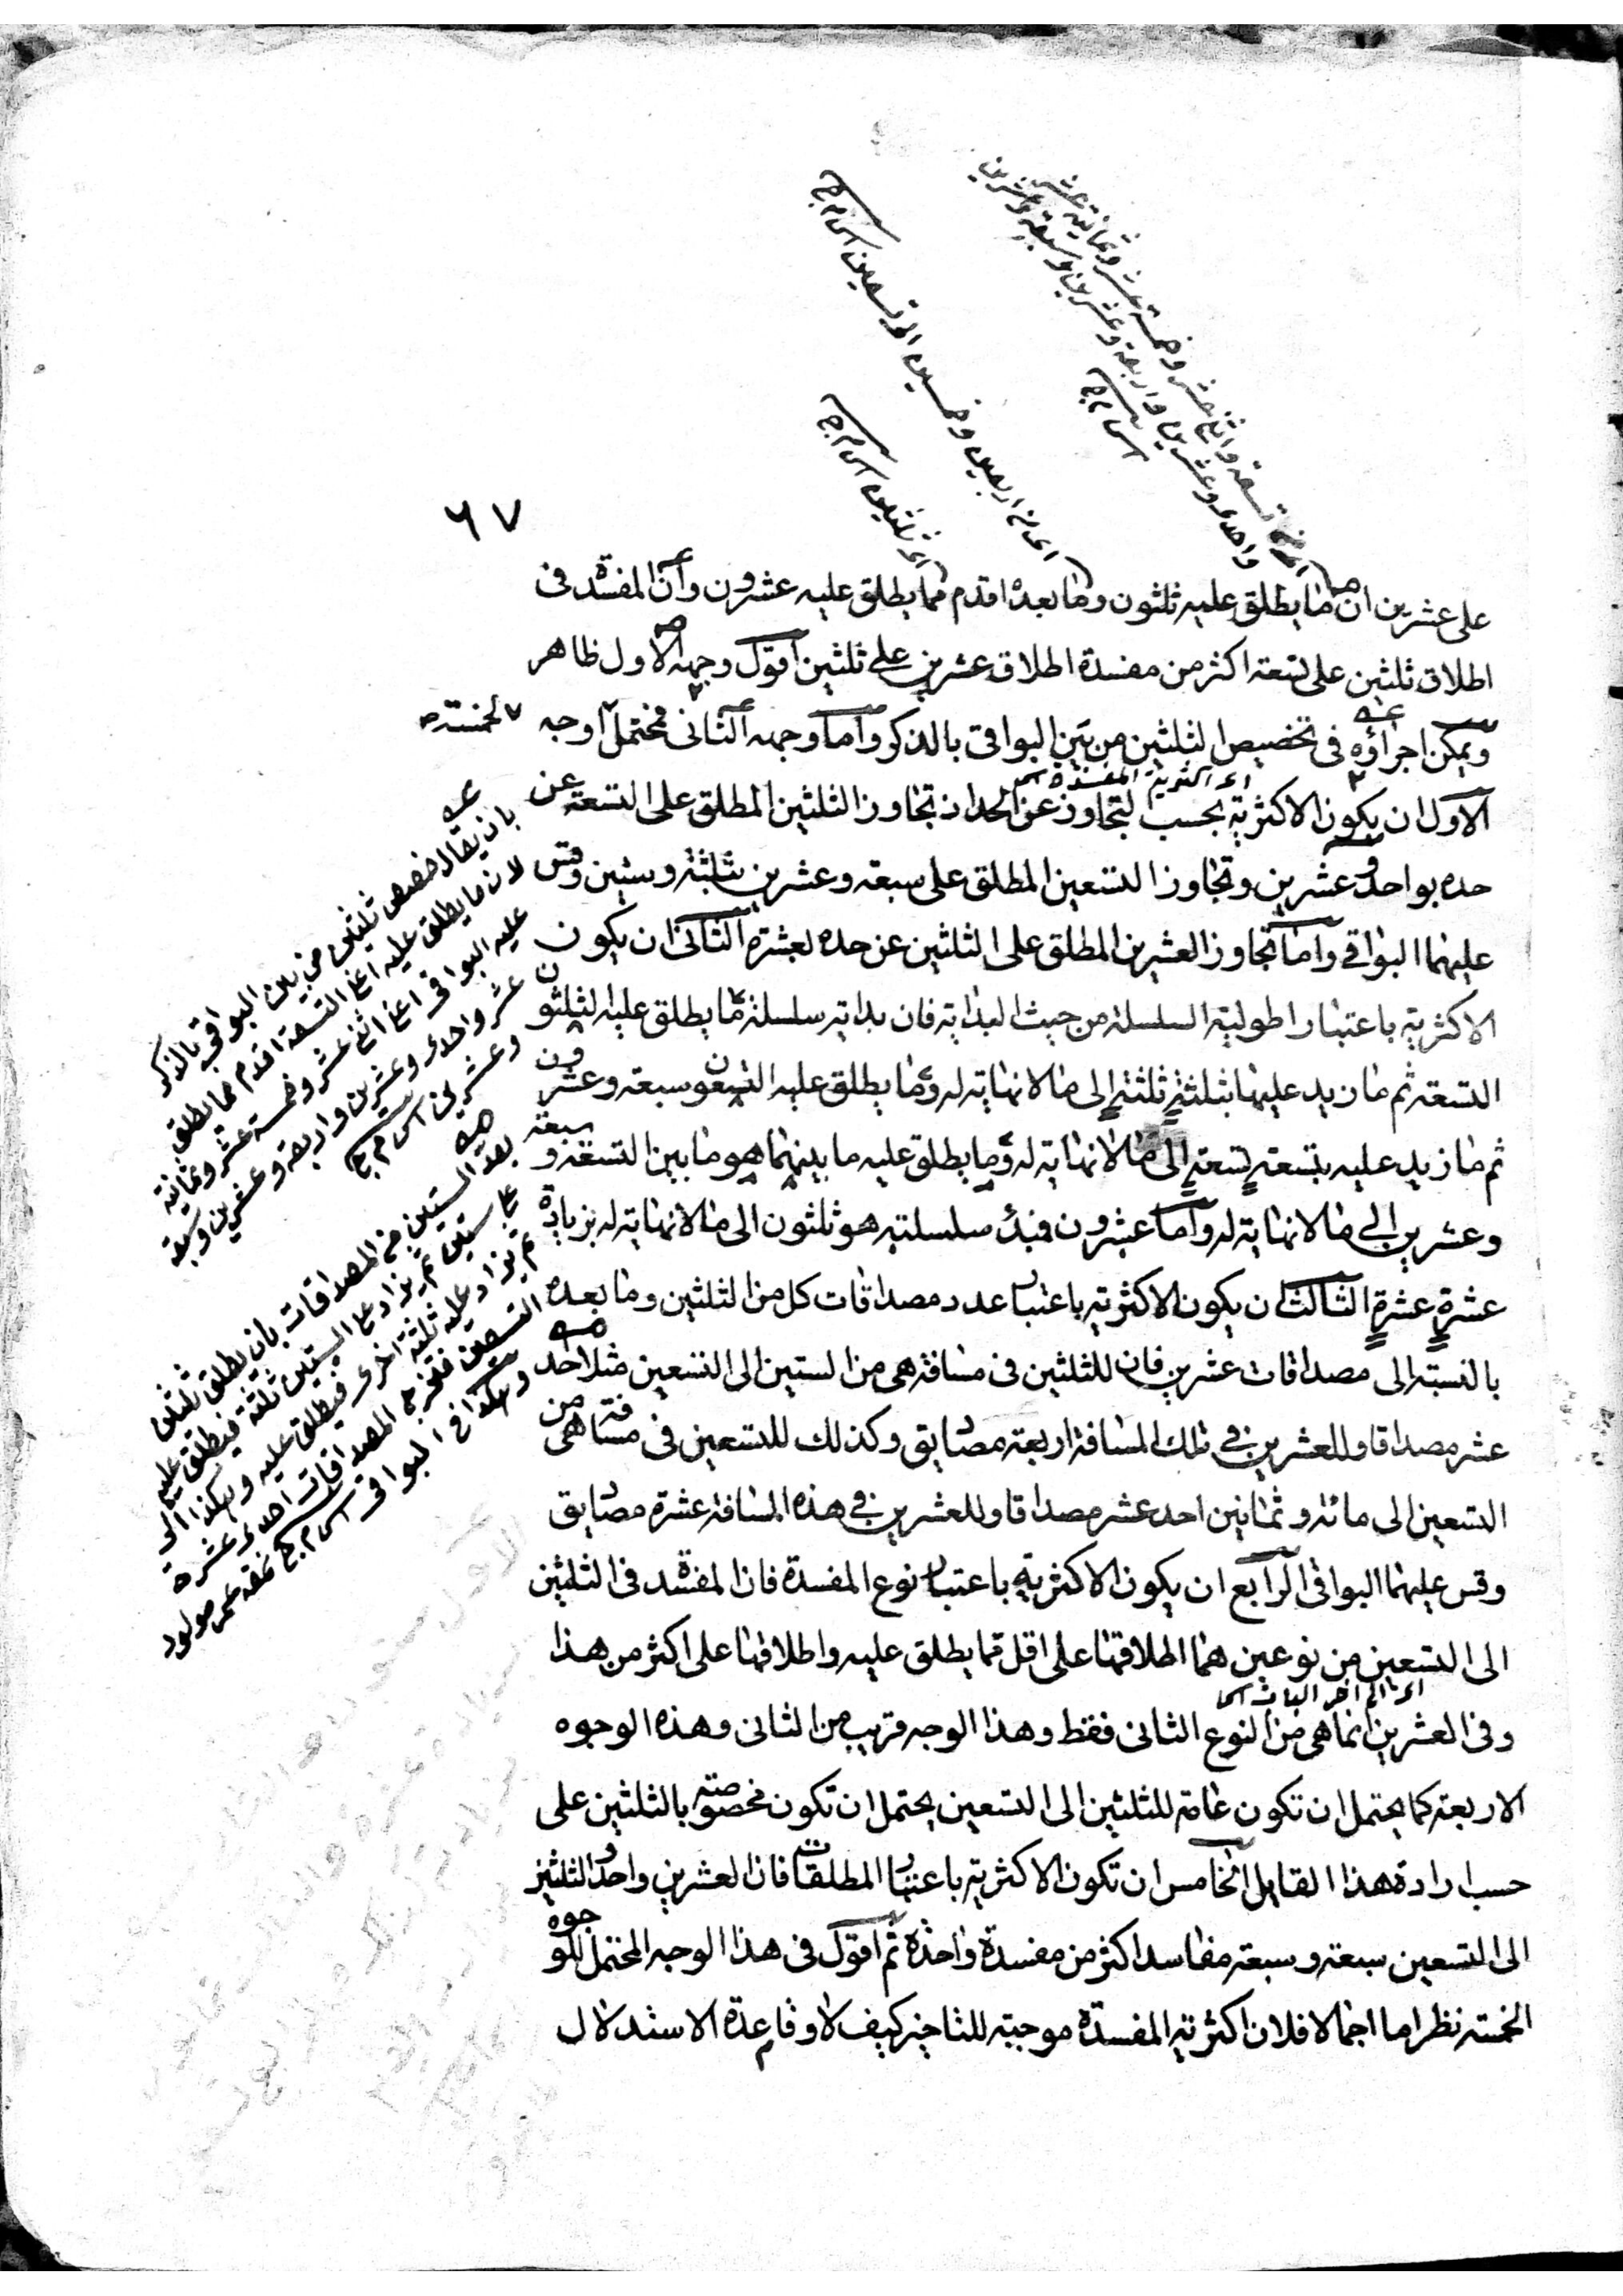 اعنى تسعة واثنى عشر وخمسة عشر وثمانية عشر
واحدى وعشرين واربعة وعشرين وسبعة وعشرين
اى من اربعين وخمسين الى تسعين
اى ثلثين
٦٧
على عشرين ان ما يطلق عليه ثلثون وما بعده اقدم مما يطلق عليه عشرون وان المفسدة فى
اطلاق ثلثين على تسعة اكثر من مفسدة اطلاق عشرين على ثلثين اقول وجه الاول ظاهر
ويمكن اجراؤه فى تخصيص الثلثين من بين البواقى بالذكر واما وجه الثانى فمحتمل اوجه
لخمسة
اى اكثرية المفسدة
الاول ان يكون الاكثرية بحسب التجاوز عن الحد ان تجاوز الثلثين المطلق على التسعة عن
حده بواحد وعشرين وتجاوز التسعين المطلق على سبعة وعشرين بثلثة وستين وقس
عليهما البواقى واما تجاوز العشرين المطلق على الثلثين عن حده بعشرة الثانى ان يكون
الاكثرية باعتبار اطولية السلسلة من حيث البداية فان بداية سلسلة ما يطلق عليه ثلثون
التسعة ثم ما زيد عليها بثلثة ثلثة الى ما لا نهاية له وما يطلق عليه التسعون سبعة وعشرون
ثم ما زيد عليه بتسعة تسعة الى ما لا نهاية له وما يطلق عليه ما بينهما هو ما بين التسعة و سبعة
وعشرين الى ما لا نهاية له واما عشرون فبدء سلسلته هو ثلثون الى ما لا نهاية له بزيادة
عشرة عشرة الثالث ان يكون الاكثرية باعتبار عدد مصداقات كل من الثلثين وما بعده
بالنسبة الى مصداقات عشرين فان للثلثين فى مسافة هى من الستين الى التسعين مثلا احد
عشر مصداقا وللعشرين فى تلك المسافة اربعة مصاديق وكذلك للتسعين فى مسافة هى من
التسعين الى مائة وثمانين احد عشر مصداقا وللعشرين فى هذه المسافة عشرة مصاديق
وقس عليهما البواقى الرابع ان يكون الاكثرية باعتبار نوع المفسدة فان المفسدة فى الثلثين
الى التسعين من نوعين هما اطلاقها على اقل مما يطلق عليه واطلاقها على اكثر من هذا
وفى العشرين انما هى من النوع الثانى فقط وهذا الوجه قريب من الثانى وهذه الوجوه
الاربعة كما يحتمل ان تكون عامة للثلثين الى التسعين يحتمل ان تكون مخصوصة بالثلثين على
حسب ارادة هذا القايل الخامس ان تكون الاكثرية باعتبار المطلقات فان العشرين واحد والثلثين
الى التسعين سبعة وسبعة مفاسد اكثر من مفسدة واحدة ثم اقول فى هذا الوجه المحتمل للوجوه
الخمسة نظر اما اجمالا فلان اكثرية المفسدة موجبة للتاخير كيف لا وقاعدة الاستدلال
بان يقال خصص ثلثين من بين البواقى بالذكر
لان ما يطلق عليه اعنى التسعة اقدم مما يطلق
عليه البواقى اعنى اثنى عشر وخمسة عشر وثمانية
عشر واحدى وعشرين واربعة وعشرين وسبعة
وعشرين
بعد الستين من المصداقات بان يطلق ثلثين
على ستين ثم يزاد على الستين ثلثة فيطلق عليه
ثم يزاد عليه ثلثة اخرى فيطلق عليه وهكذا الى
التسعين فتخرج المصداقات احدى عشرة
وهكذا فى البواقى